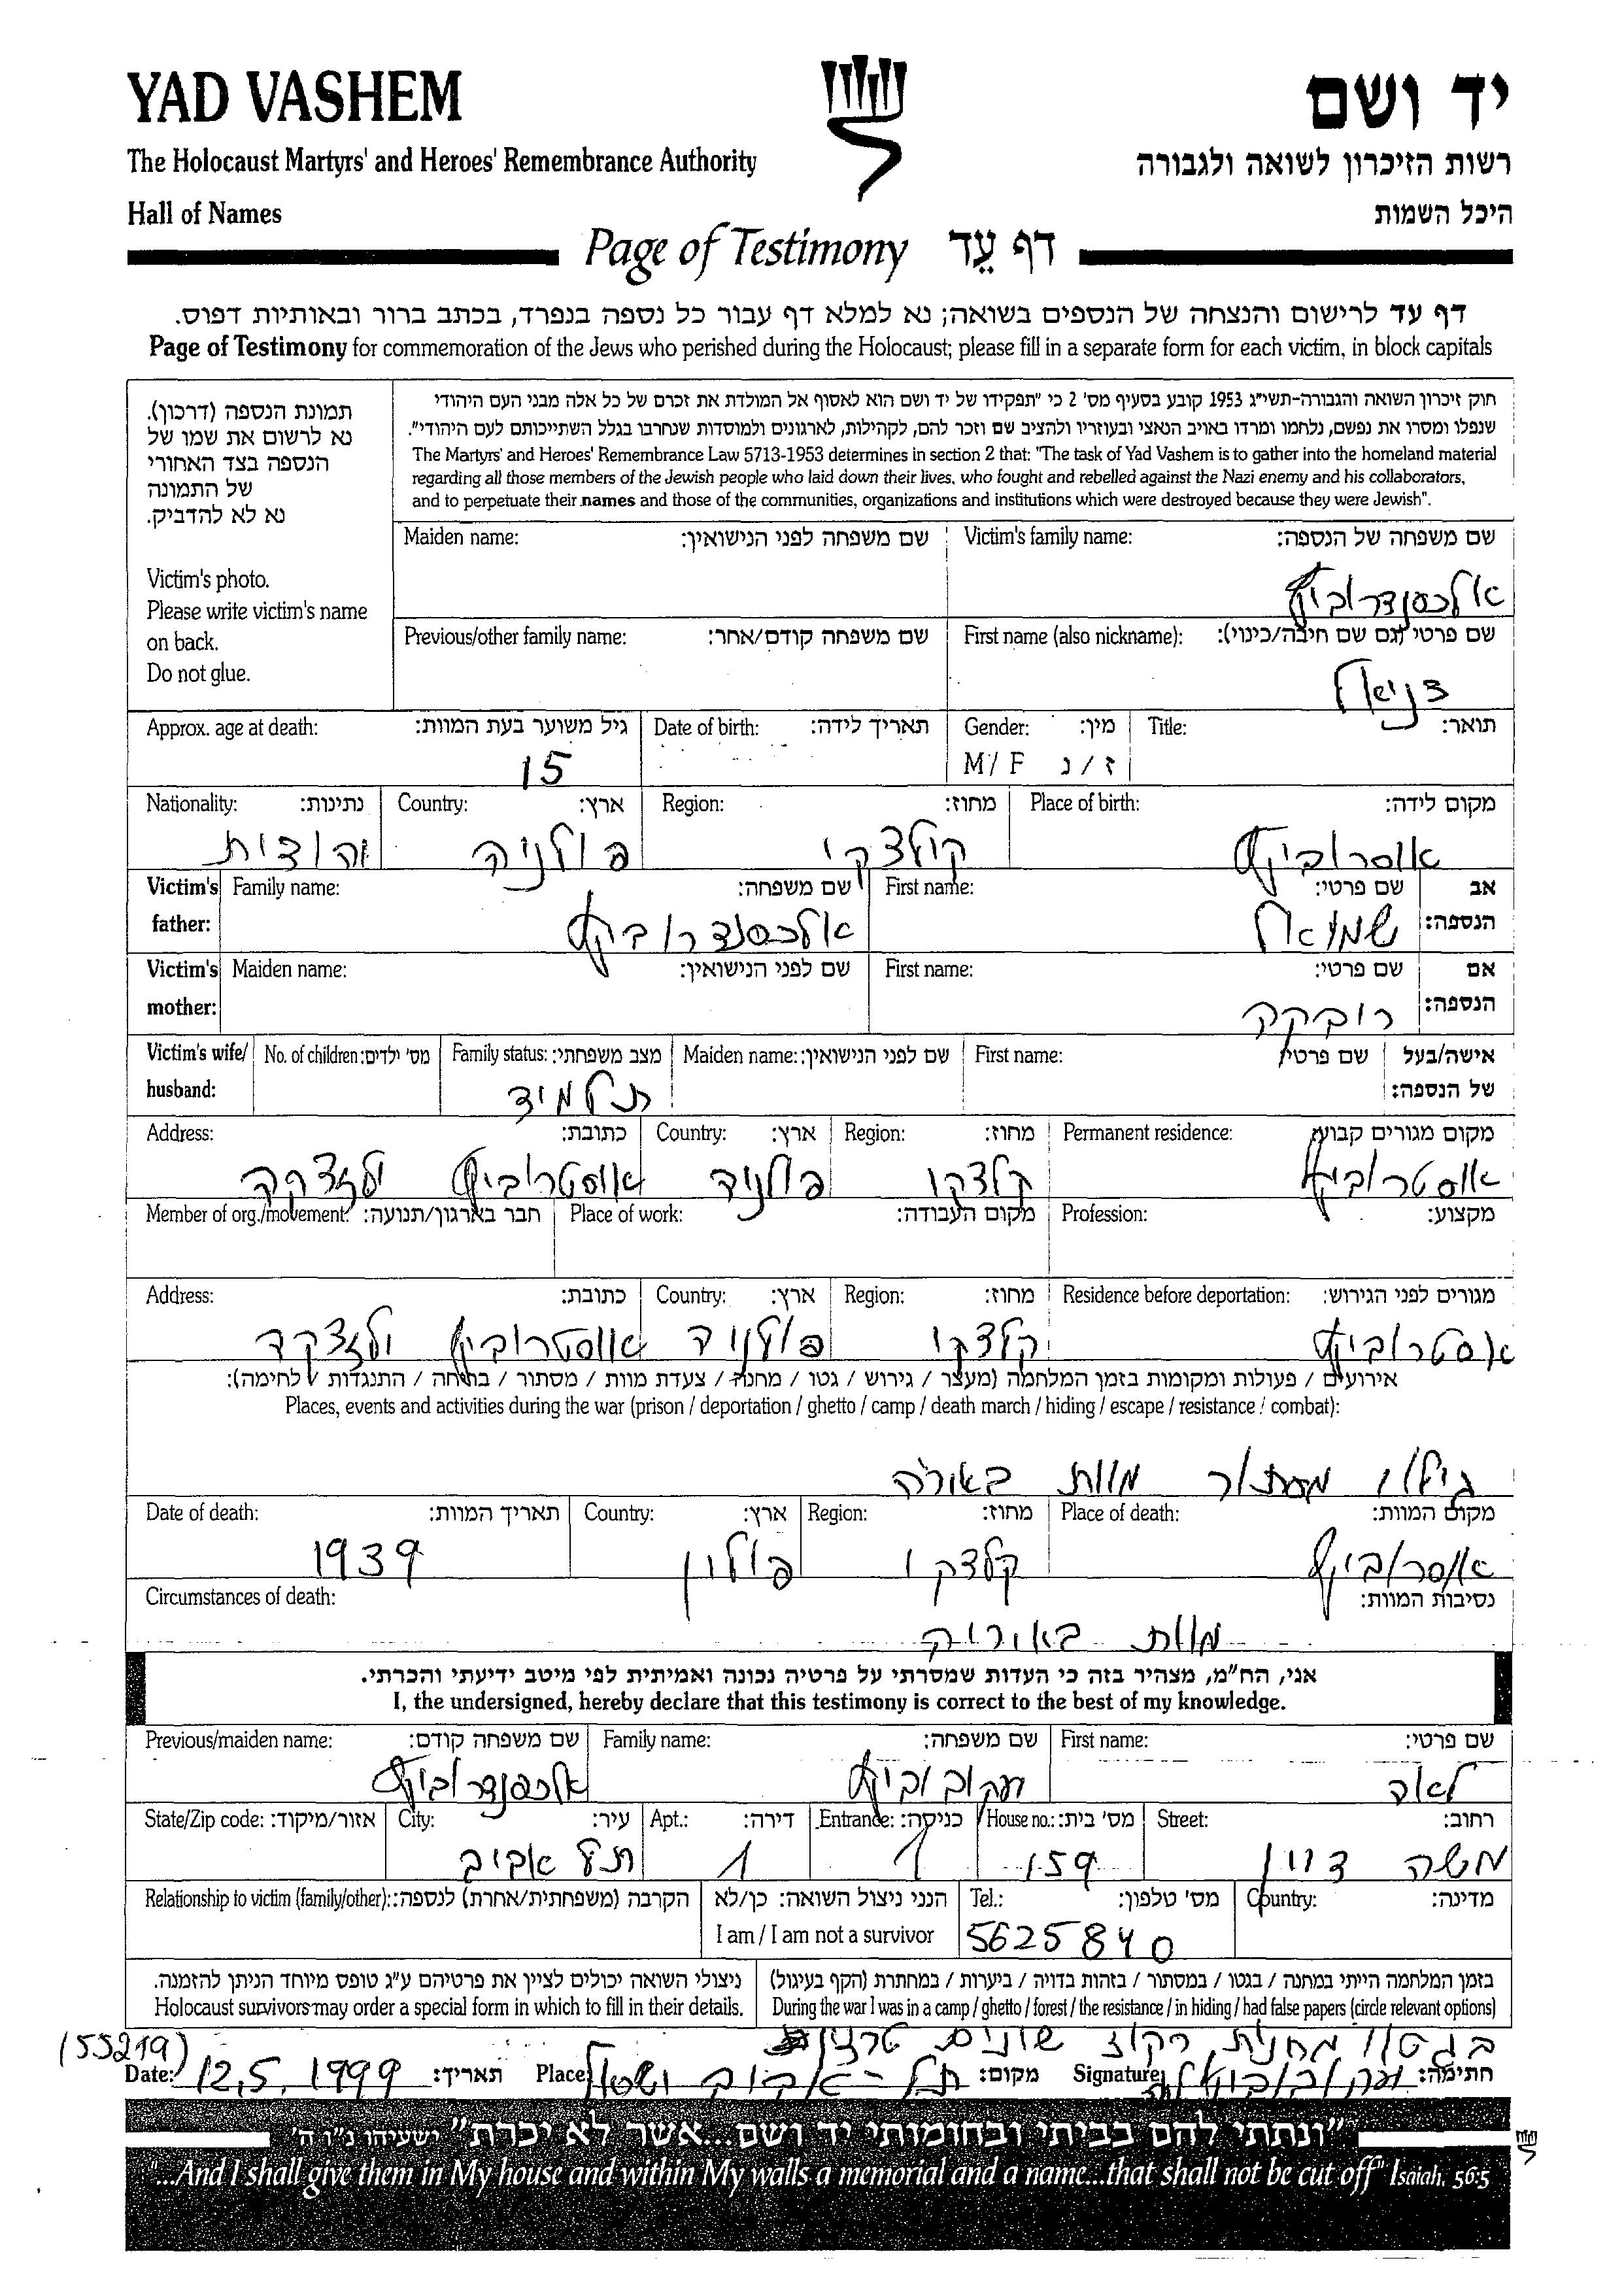 YAD VASHEM
יד ושם
The Holocaust Martyrs' and Heroes' Remembrance Authority
רשות הזיכרון לשואה ולגבורה
Hall of Names
היכל השמות
Page of Testimony דף עֵד
דף עד לרישום והנצחה של הנספים בשואה; נא למלא דף עבור כל נספה בנפרד, בכתב ברור ובאותיות דפוס.
Page of Testimony for commemoration of the Jews who perished during the Holocaust; please fill in a separate form for each victim, in block capitals
תמונת הנספה (דרכון).
נא לרשום את שמו של
הנספה בצד האחורי
של התמונה
נא לא להדביק.
Victim's photo.
Please write victim's name
on back.
Do not glue.
חוק זיכרון השואה והגבורה-תשי"ג 1953 קובע בסעיף מס' 2 כי "תפקידו של יד ושם הוא לאסוף אל המולדת את זכרם של כל אלה מבני העם היהודי
שנפלו ומסרו את נפשם, נלחמו ומרדו באויב הנאצי ובעוזריו ולהציב שם וזכר להם, לקהילות, לארגונים ולמוסדות שנחרבו בגלל השתייכותם לעם היהודי".
The Martyrs' and Heroes' Remembrance Law 5713-1953 determines in section 2 that: "The task of Yad Vashem is to gather into the homeland material
regarding all those members of the Jewish people who laid down their lives, who fought and rebelled against the Nazi enemy and his collaborators,
and to perpetuate their names and those of the communities, organizations and institutions which were destroyed because they were Jewish".
Maiden name: שם משפחה לפני הנישואין: Victim's family name: שם משפחה של הנספה:
אלכסנדרוביץ
Previous/other family name: שם משפחה קודם/אחר: First name (also nickname): שם פרטי (גם שם חיבה/כינוי):
דניאל
Approx. age at death: גיל משוער בעת המוות: Date of birth: תאריך לידה: Gender: מין: Title: תואר:
15 M / F ז / נ
Nationality: נתינות: Country: ארץ: Region: מחוז: Place of birth: מקום לידה:
יהודית פולניה קולצקי אוסרוביץ
Victim's father: Family name: שם משפחה: First name: שם פרטי: אב הנספה:
אלכסנדרוביץ שמואל
Victim's mother: Maiden name: שם לפני הנישואין: First name: שם פרטי: אם הנספה:
רובקה
Victim's wife/ husband: No. of children: מס' ילדים: Family status: מצב משפחתי: Maiden name: שם לפני הנישואין: First name: שם פרטי: אישה/בעל של הנספה:
תלמיד
Address: כתובת: Country: ארץ: Region: מחוז: Permanent residence: מקום מגורים קבוע:
אוסטרוביץ פולניה קלצקי אוסטרוביץ
Member of org./movement: חבר בארגון/תנועה: Place of work: מקום העבודה: Profession: מקצוע:
Address: כתובת: Country: ארץ: Region: מחוז: Residence before deportation: מגורים לפני הגירוש:
אוסטרוביץ פולניה קלצקי אסטרוביץ
אירועים / פעולות ומקומות בזמן המלחמה (מעצר / גירוש / גטו / מחנה / צעדת מוות / מסתור / בריחה / התנגדות / לחימה):
Places, events and activities during the war (prison / deportation / ghetto / camp / death march / hiding / escape / resistance / combat):
גילוי מסתור מוות
Date of death: תאריך המוות: Country: ארץ: Region: מחוז: Place of death: מקום המוות:
1939 פולין קלצקי אוסרוביץ
Circumstances of death: נסיבות המוות:
מוות
אני, הח"מ, מצהיר בזה כי העדות שמסרתי על פרטיה נכונה ואמיתית לפי מיטב ידיעתי והכרתי.
I, the undersigned, hereby declare that this testimony is correct to the best of my knowledge.
Previous/maiden name: שם משפחה קודם: Family name: שם משפחה: First name: שם פרטי:
אלכסנדרוביץ יעקובוביץ לאה
State/Zip code: אזור/מיקוד: City: עיר: Apt.: דירה: Entrance: כניסה: House no.: מס' בית: Street: רחוב:
תל אביב 1 1 159 משה דיין
Relationship to victim (family/other): הקרבה (משפחתית/אחרת) לנספה: הנני ניצול השואה: כן/לא Tel.: מס' טלפון: Country: מדינה:
I am / I am not a survivor 5625840
ניצולי השואה יכולים לציין את פרטיהם ע"ג טופס מיוחד הניתן להזמנה. בזמן המלחמה הייתי במחנה / בגטו / במסתור / בזהות בדויה / ביערות / במחתרת (הקף בעיגול)
Holocaust survivors may order a special form in which to fill in their details. During the war I was in a camp / ghetto / forest / the resistance / in hiding / had false papers (circle relevant options)
בגטו מחנות רקוז שונים
(55219)
Date: 12.5.1999 תאריך: Place: תל-אביב מקום: Signature: חתימה:
"ונתתי להם בביתי ובחומותי יד ושם...אשר לא יכרת" ישעיהו נ"ו ה'
"...And I shall give them in My house and within My walls a memorial and a name...that shall not be cut off" Isaiah, 56:5